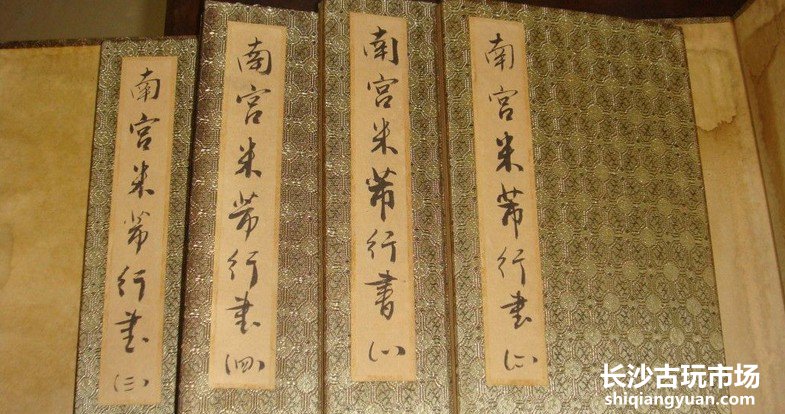 南宫米芾行書(三)
南宫米芾行書(四)
南宫米芾行書(一)
南宫米芾行書(二)
长沙古玩市场
shiqiangyuan.com